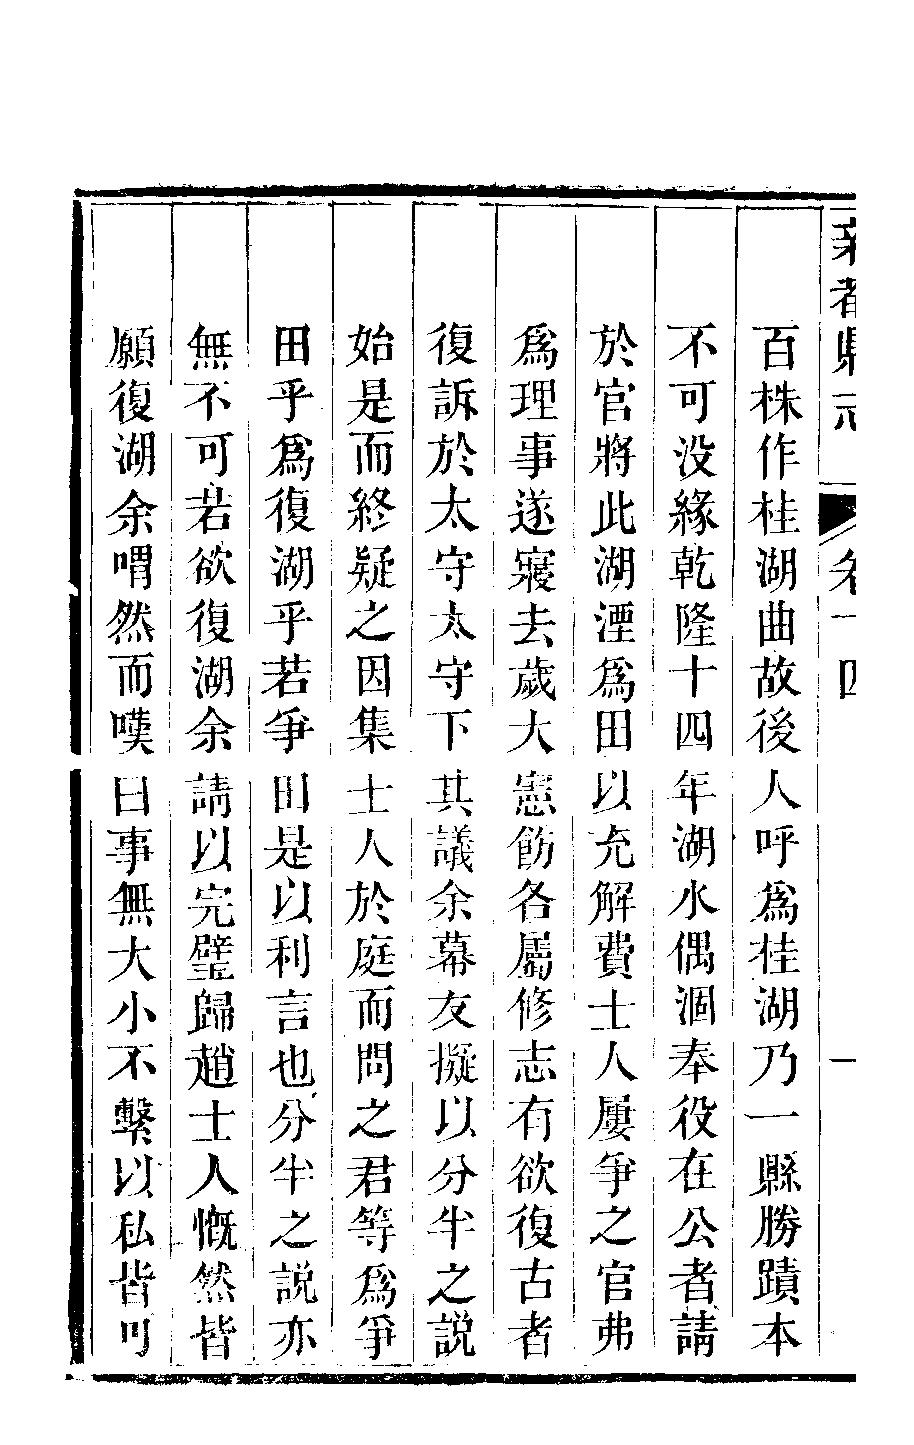 新都縣志 卷十四 一
百株作桂湖曲故後人呼爲桂湖乃一縣勝蹟本
不可没緣乾隆十四年湖水偶涸奉役在公者請
於官將此湖湮爲田以充解費士人屢爭之官弗
爲理事遂寢去歲大憲飭各屬修志有欲復古者
復訴於太守太守下其議余幕友擬以分半之説
始是而終疑之因集士人於庭而問之君等爲爭
田乎爲復湖乎若爭田是以利言也分半之説亦
無不可若欲復湖余請以完璧歸趙士人慨然皆
願復湖余喟然而嘆曰事無大小不繫以私皆可